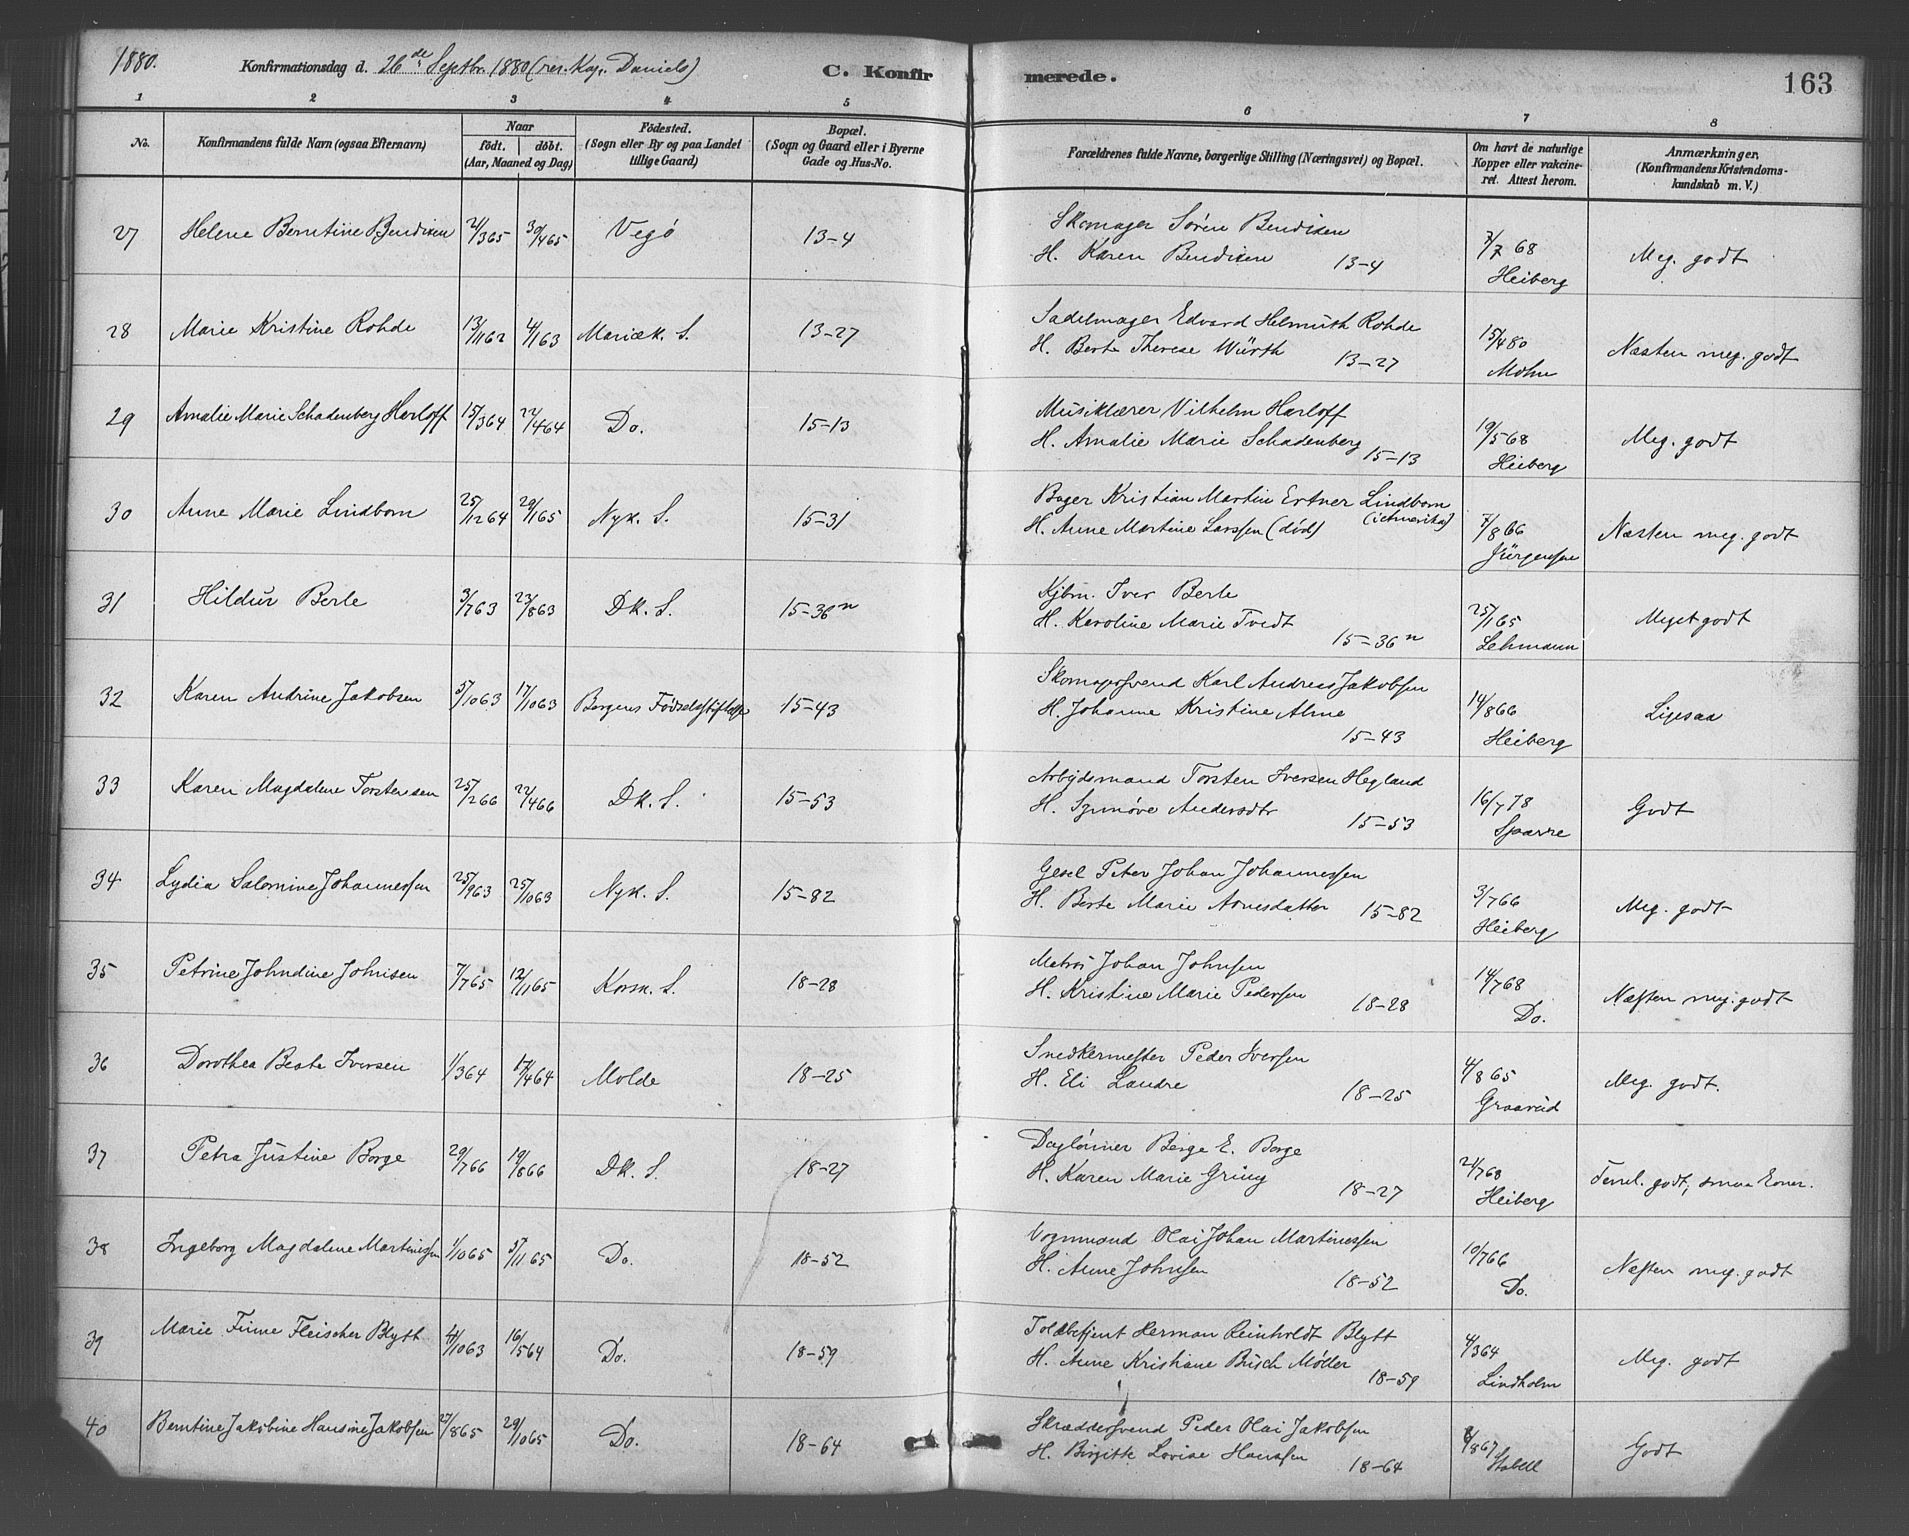 1880.
Konfirmationsdag d. 26de Septbr. 1880 (res. Kap. Daniels)
C. Konfirmerede.
163
1 2 3 4 5 6 7 8
No.
Konfirmandens fulde Navn (ogsaa Efternavn)
Naar
født. døbt.
(Aar, Maaned og Dag)
Fødested.
(Sogn eller By og paa Landet
tillige Gaard)
Bopæl.
(Sogn og Gaard eller i Byerne
Gade og Hus-No.
Forældrenes fulde Navne, borgerlige Stilling (Næringsvei) og Bopæl.
Om havt de naturlige
Kopper eller vakcine-
ret. Attest herom.
Anmærkninger.
(Konfirmandens Kristendoms-
kundskab m. V.)
27 Helene Berntine Bendixen 2/365 30/465 Vegö 13-4 Skomager Sören Bendixen
H. Karen Bendixen 13-4 7/7 68 Heiberg Meg. godt
28 Marie Kristine Rohde 13/1162 4/163 Mariæk. S. 13-27 Sadelmager Edvard Helmuth Rohde
H. Berte Therese Würth 13-27 15/480 Mohn Næsten meg. godt
29 Amalie Marie Schadenberg Harloff 15/364 22/464 Do. 15-13 Musiklærer Vilhelm Harloff
H. Amalie Marie Schadenberg 15-13 19/568 Heiberg Meg. godt
30 Anne Marie Lindbom 25/1264 29/165 Nyk. S. 15-31 Bager Kristian Martin Ertner Lindbom
H. Anne Martine Larssen (död) (i Amerika) 7/866 Jürgensen Næsten meg. godt
31 Hildur Berle 3/763 23/863 Dk. S. 15-36n Kjbm. Iver Berle
H. Karoline Marie Tvedt 15-36n 25/165 Lehmann Meget godt
32 Karen Andrine Jakobsen 5/1063 17/1063 Bergens Födselsstiftelse 15-43 Skomagersvend Karl Andreas Jakobsen
H. Johanne Kristine Alme 15-43 14/866 Heiberg Ligesaa
33 Karen Magdalene Torstensen 25/266 22/466 Dk. S. 15-53 Arbejdsmand Torsten Iversen Hegland
H. Synnöve Andersdtr 15-53 16/778 Sparre Godt
34 Lydia Salomine Johannessen 25/963 25/1063 Nyk. S. 15-82 Gesel Peter Johan Johannessen
H. Berte Marie Arnesdatter 15-82 3/766 Heiberg Meg. godt
35 Petrine Johndine Johnsen 7/765 12/1165 Korsk. S. 18-28 Matros Johan Johnsen
H. Kristine Marie Pedersen 18-28 14/768 Do. Næsten meg. godt
36 Dorothea Beate Iversen 1/364 17/464 Molde 18-25 Snedkermester Peder Iversen
H. Eli Landre 18-25 4/865 Meg. godt.
37 Petra Justine Borge 29/766 19/866 Dk. S. 18-27 Daglönner Berge E. Borge
H. Karen Marie Grung 18-27 21/768 Heiberg godt, smaa Evner.
38 Ingeborg Magdalene Martinessen 1/1065 5/1165 Do. 18-52 Vognmand Olai Johan Martinessen
H. Anne Johnsen 18-52 10/766 Do. Næsten meg. godt
39 Marie Finne Fleischer Blytt 4/1063 16/564 Do. 18-59 Toldbetjent Herman Reinholdt Blytt
H. Anne Kristiane Busch Möller 18-59 4/364 Lindholm Meg. godt
40 Berntine Jakobine Hansine Jakobsen 27/865 29/1065 Do. 18-64 Skræddersvend Peder Olai Jakobsen
H. Birgitte Lovise Hanssen 18-64 8/867 Stabell Godt